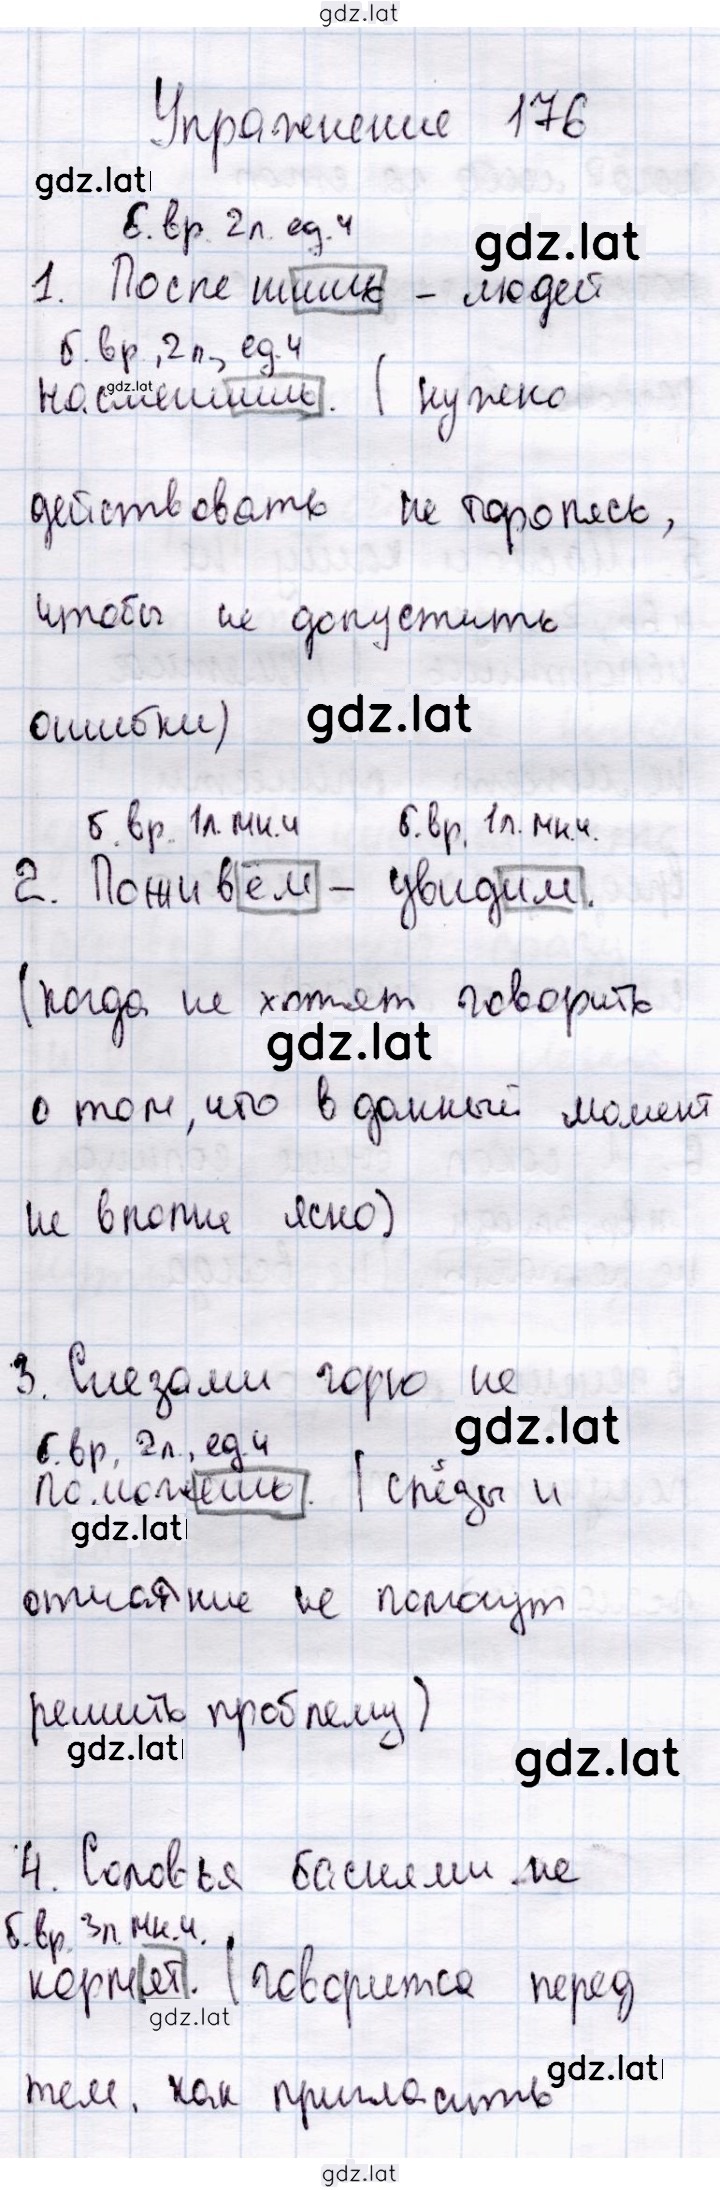 gdz.lat
Упражнение 176
gdz.lat
б.вр. 2л. ед.ч
gdz.lat
1. Поспешишь – людей
б.вр., 2л., ед.ч
gdz.lat
насмешишь. (нужно
действовать не торопясь,
чтобы не допустить
ошибки)
gdz.lat
б.вр. 1л. мн.ч б.вр, 1л. мн.ч.
2. Поживём – увидим.
(когда не хотят говорить
gdz.lat
о том, что в данный момент
не вполне ясно)
3. Слезами горю не
gdz.lat
б.вр, 2л., ед.ч
поможешь. (слёзы и
gdz.lat
отчаяние не помогут
решить проблему)
gdz.lat
gdz.lat
4. Соловья баснями не
б.вр. 3л. мн.ч.
кормят. (говорится перед
gdz.lat
gdz.lat
тем, как пригласить
gdz.lat